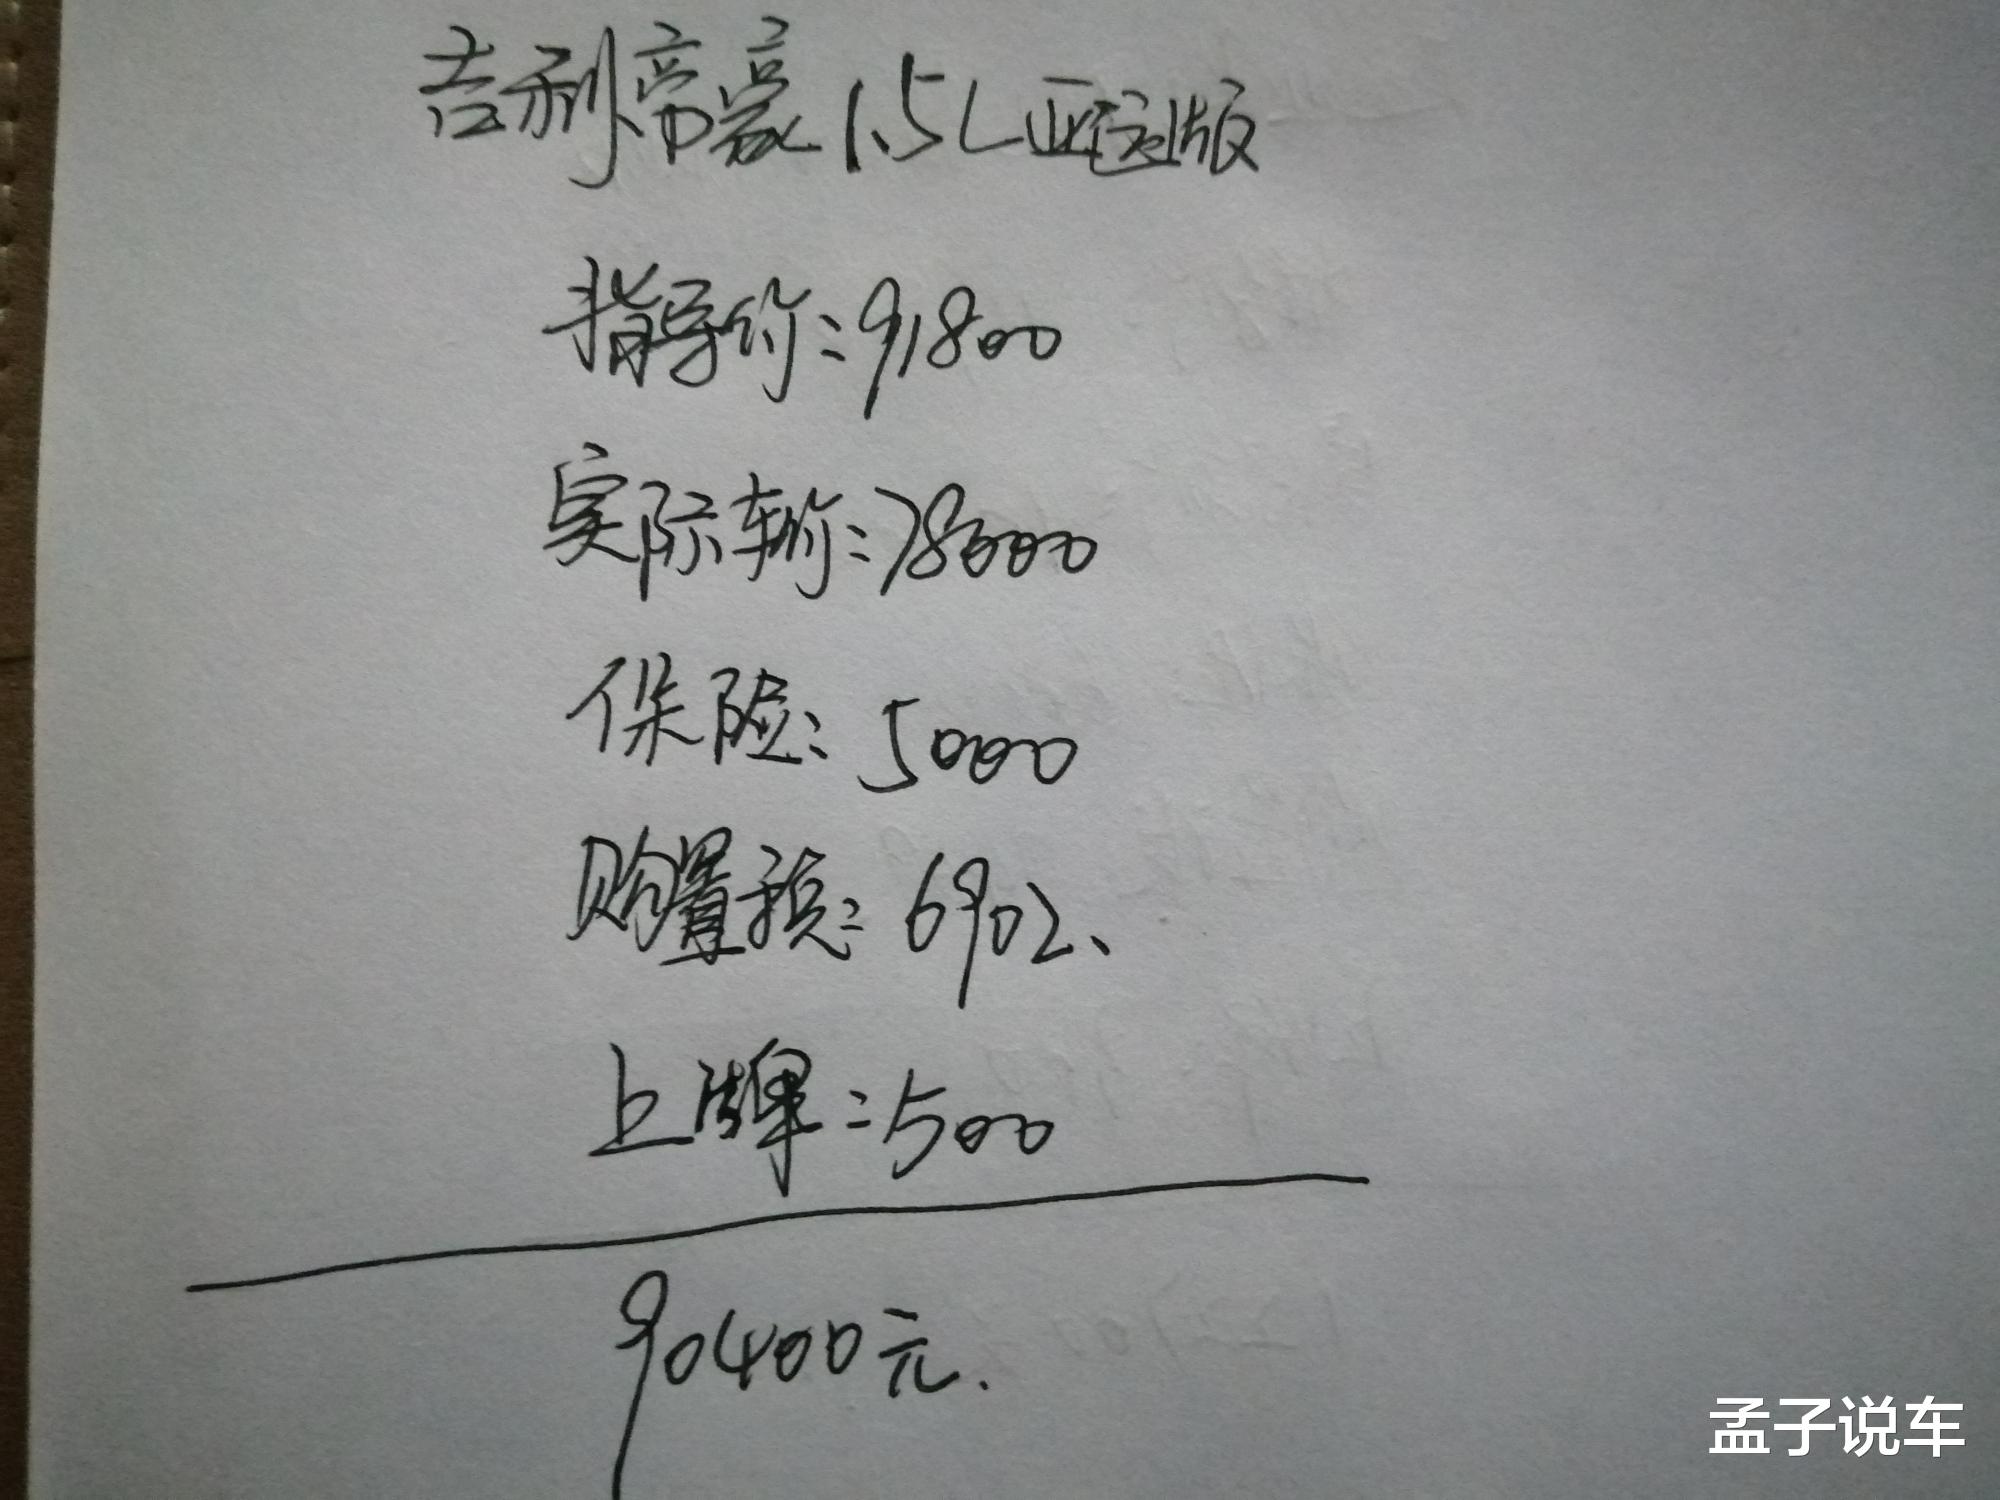 吉利帝豪1.5L亚运版
指导价:91800
实际车价:78000
保险:5000
购置税:6902、
上牌:500
90400元.
孟子说车